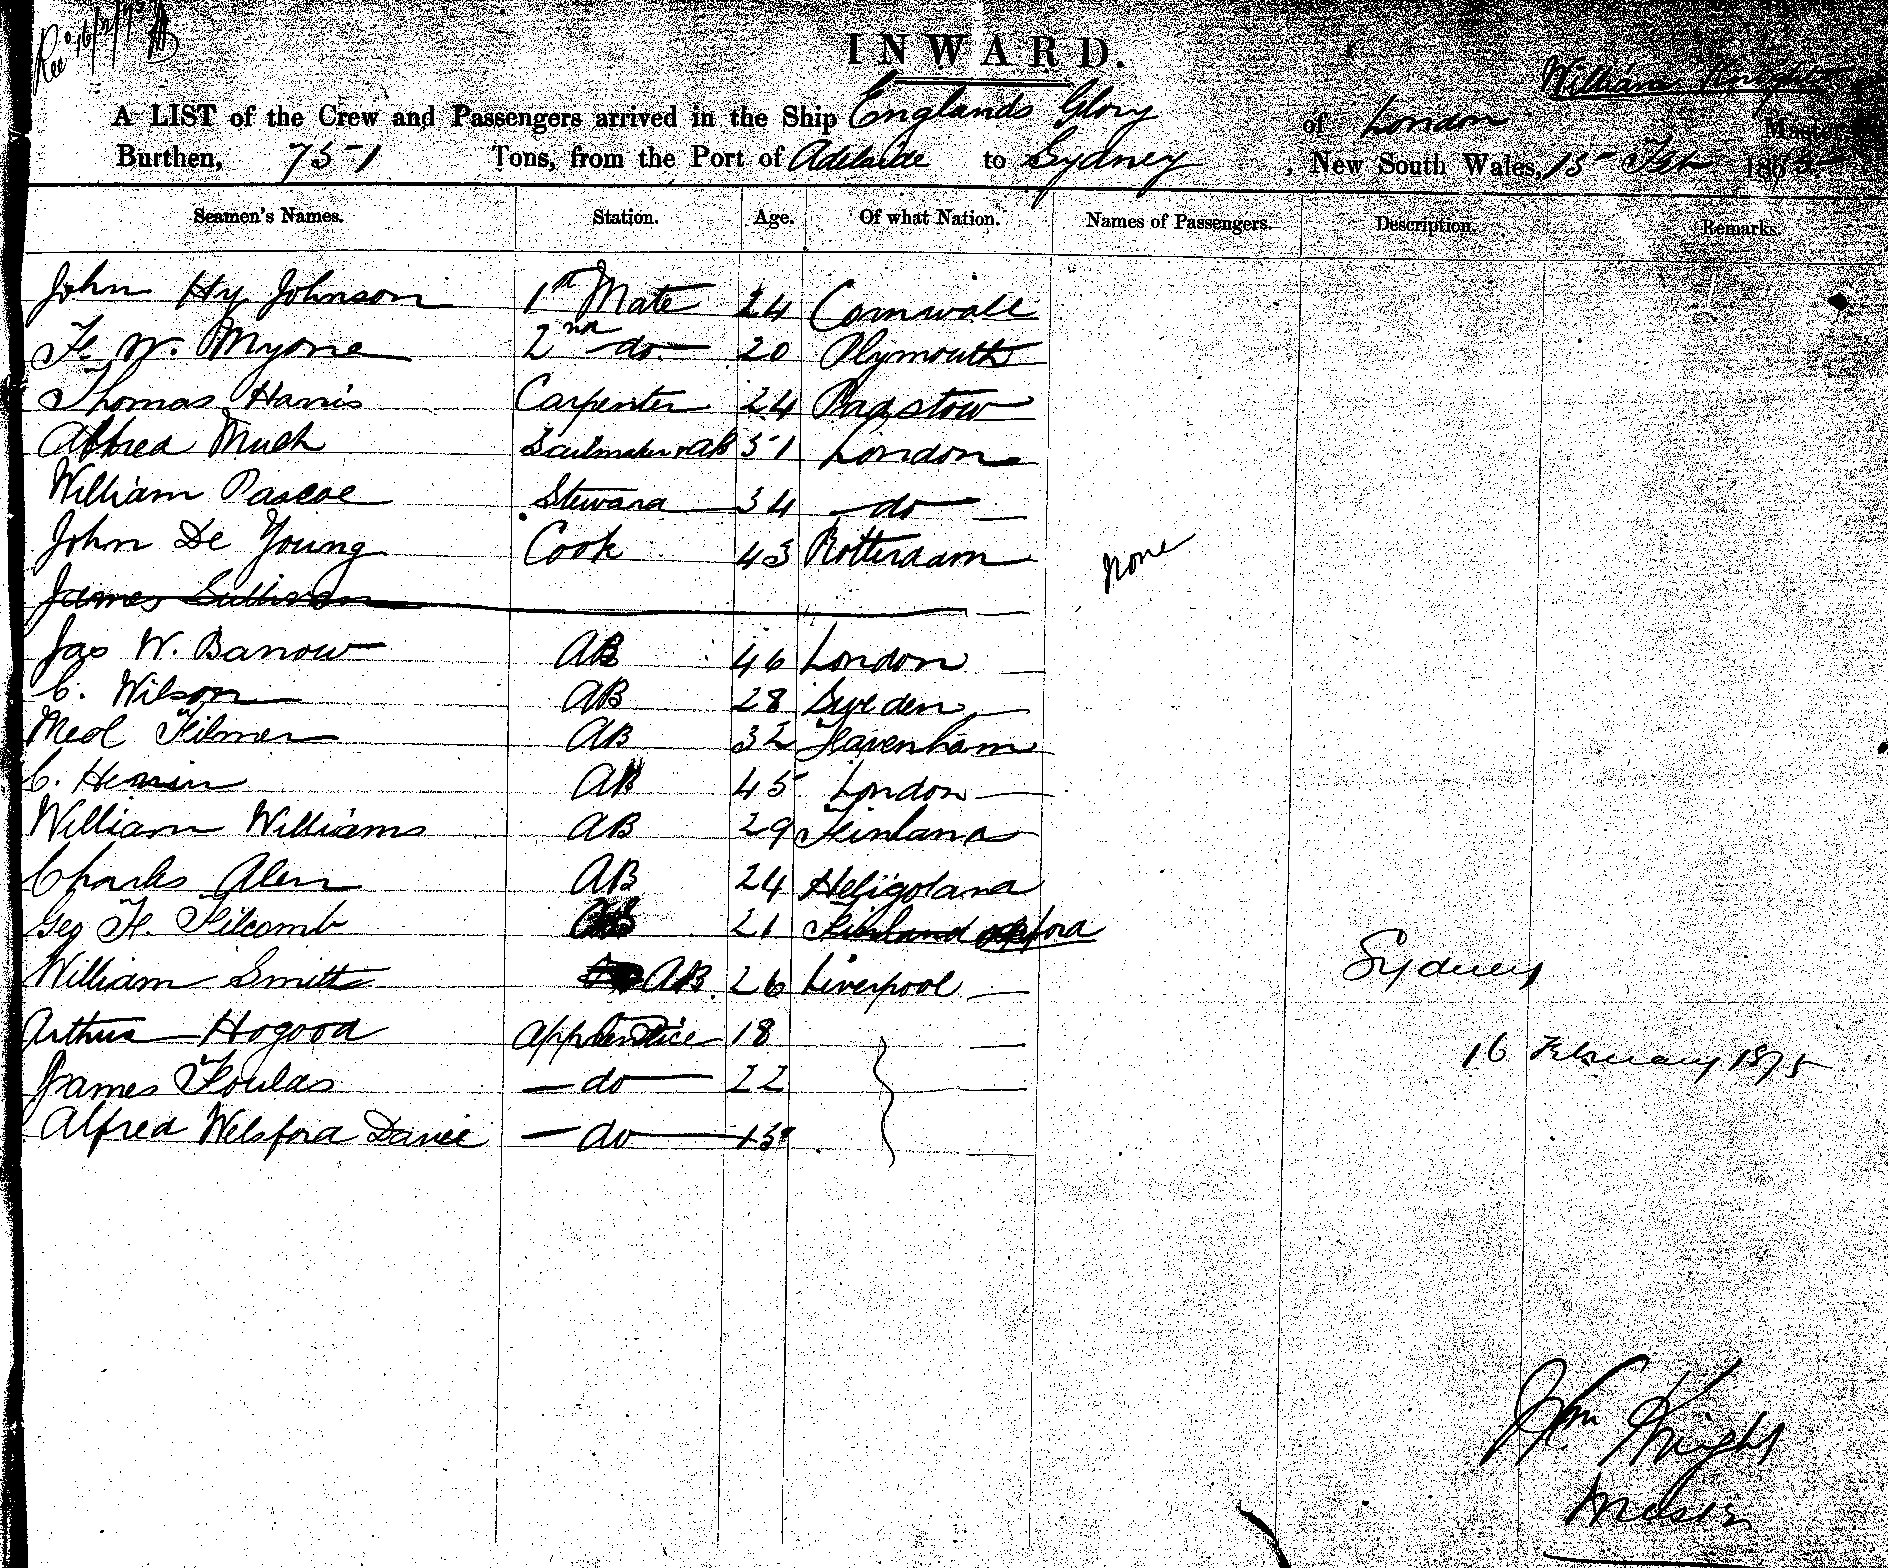 Rec 16/2/75
INWARD.
William Knight
A LIST of the Crew and Passengers arrived in the Ship Englands Glory of London Master
Burthen, 751 Tons, from the Port of Adelaide to Sydney, New South Wales, 15 Feb 1875
Seamen's Names. Station. Age. Of what Nation. Names of Passengers. Description. Remarks.
John Hy Johnson 1st Mate 24 Cornwall
W. 2nd do 20 Plymouth
Thomas Harris Carpenter 24 Padstow
Alfred Much Sailmaker & AB 51 London
William Pascoe Steward 34 do
John De Young Cook 43 Rotterdam
None
James Sullivan
Jas W. Barrow AB 46 London
C. Wilson AB 28 Sweden
Filmer AB 32 Favenham
C. AB 45 London
William Williams AB 29 Finland
Charles Alen AB 24 Heligoland
Geo F. Filcomb 21 Finland
William Smith AB 26 Liverpool
Sydney
Arthur Hogood Apprentice 18
16 February 1875
James Foulds do 22
Alfred Welsford Davie do 15
Wm Knight
Master